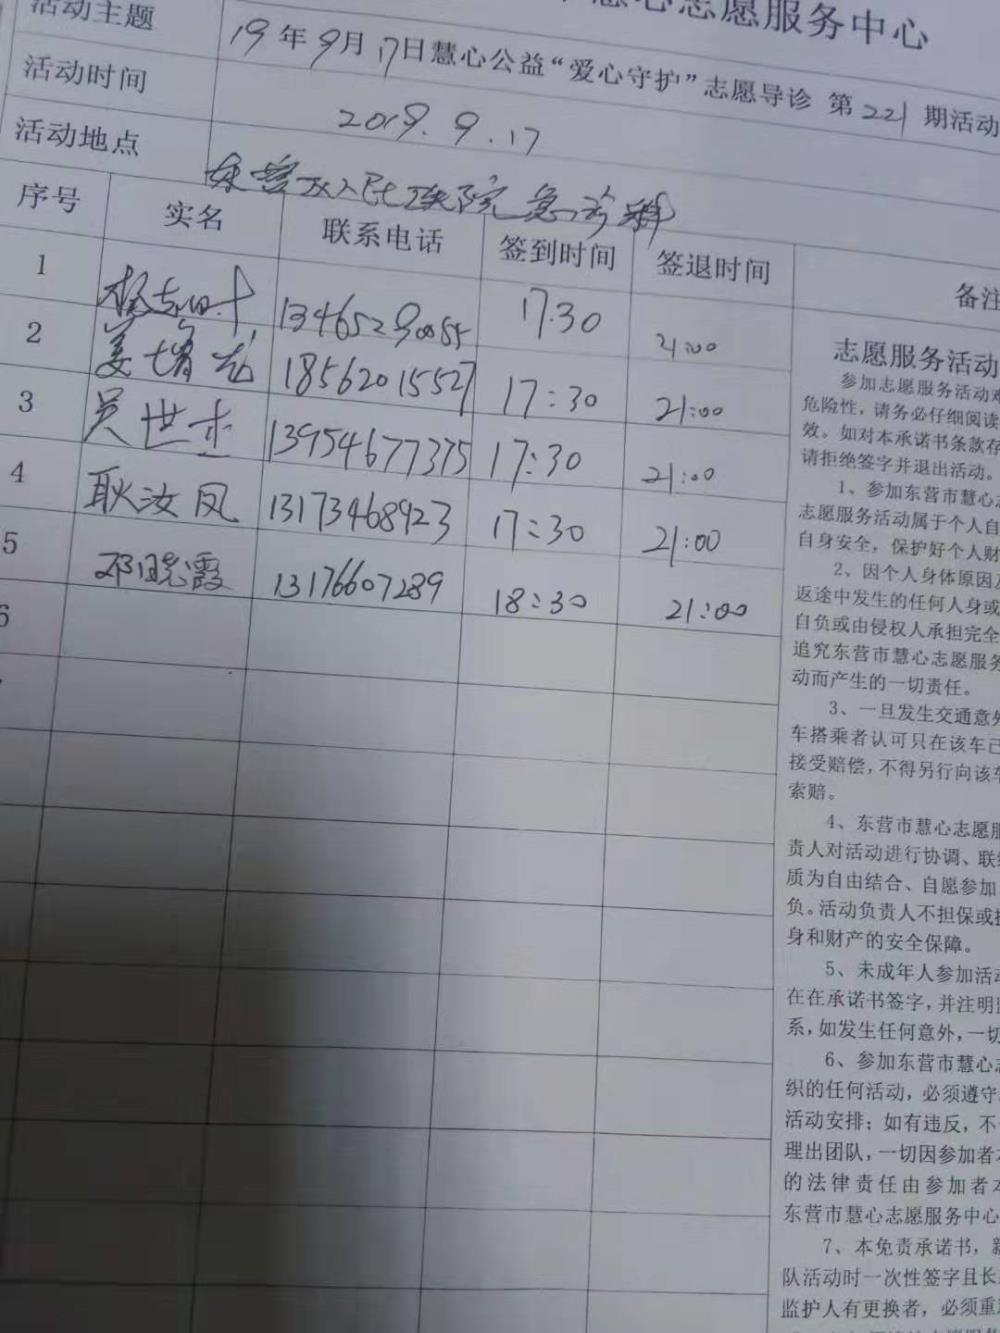 慧心志愿服务中心
活动主题 19年9月17日慧心公益“爱心守护”志愿导诊 第221期活动
活动时间 2019.9.17
活动地点 东营市人民医院急诊科
序号 实名 联系电话 签到时间 签退时间 备注
1 17:30 21:00
2 姜 18562015527 17:30 21:00
3 吴世杰 13954677375 17:30 21:00
4 耿汝凤 13173468923 17:30 21:00
5 邓晓霞 13176607289 18:30 21:00
6
志愿服务活动
参加志愿服务活动
危险性，请务必仔细阅读
效。如对本承诺书条款存
请拒绝签字并退出活动。
1、参加东营市慧心
志愿服务活动属于个人自
自身安全，保护好个人财
2、因个人身体原因及
返途中发生的任何人身或
自负或由侵权人承担完全
追究东营市慧心志愿服务
动而产生的一切责任。
3、一旦发生交通意外
车搭乘者认可只在该车已
接受赔偿，不得另行向该车
索赔。
4、东营市慧心志愿服
责人对活动进行协调、联
质为自由结合、自愿参加
负。活动负责人不担保或
身和财产的安全保障。
5、未成年人参加活动
在在承诺书签字，并注明
系，如发生任何意外，一切
6、参加东营市慧心志
织的任何活动，必须遵守
活动安排；如有违反，不
理出团队，一切因参加者本
的法律责任由参加者本
东营市慧心志愿服务中心
7、本免责承诺书，新
队活动时一次性签字且长
监护人有更换者，必须重